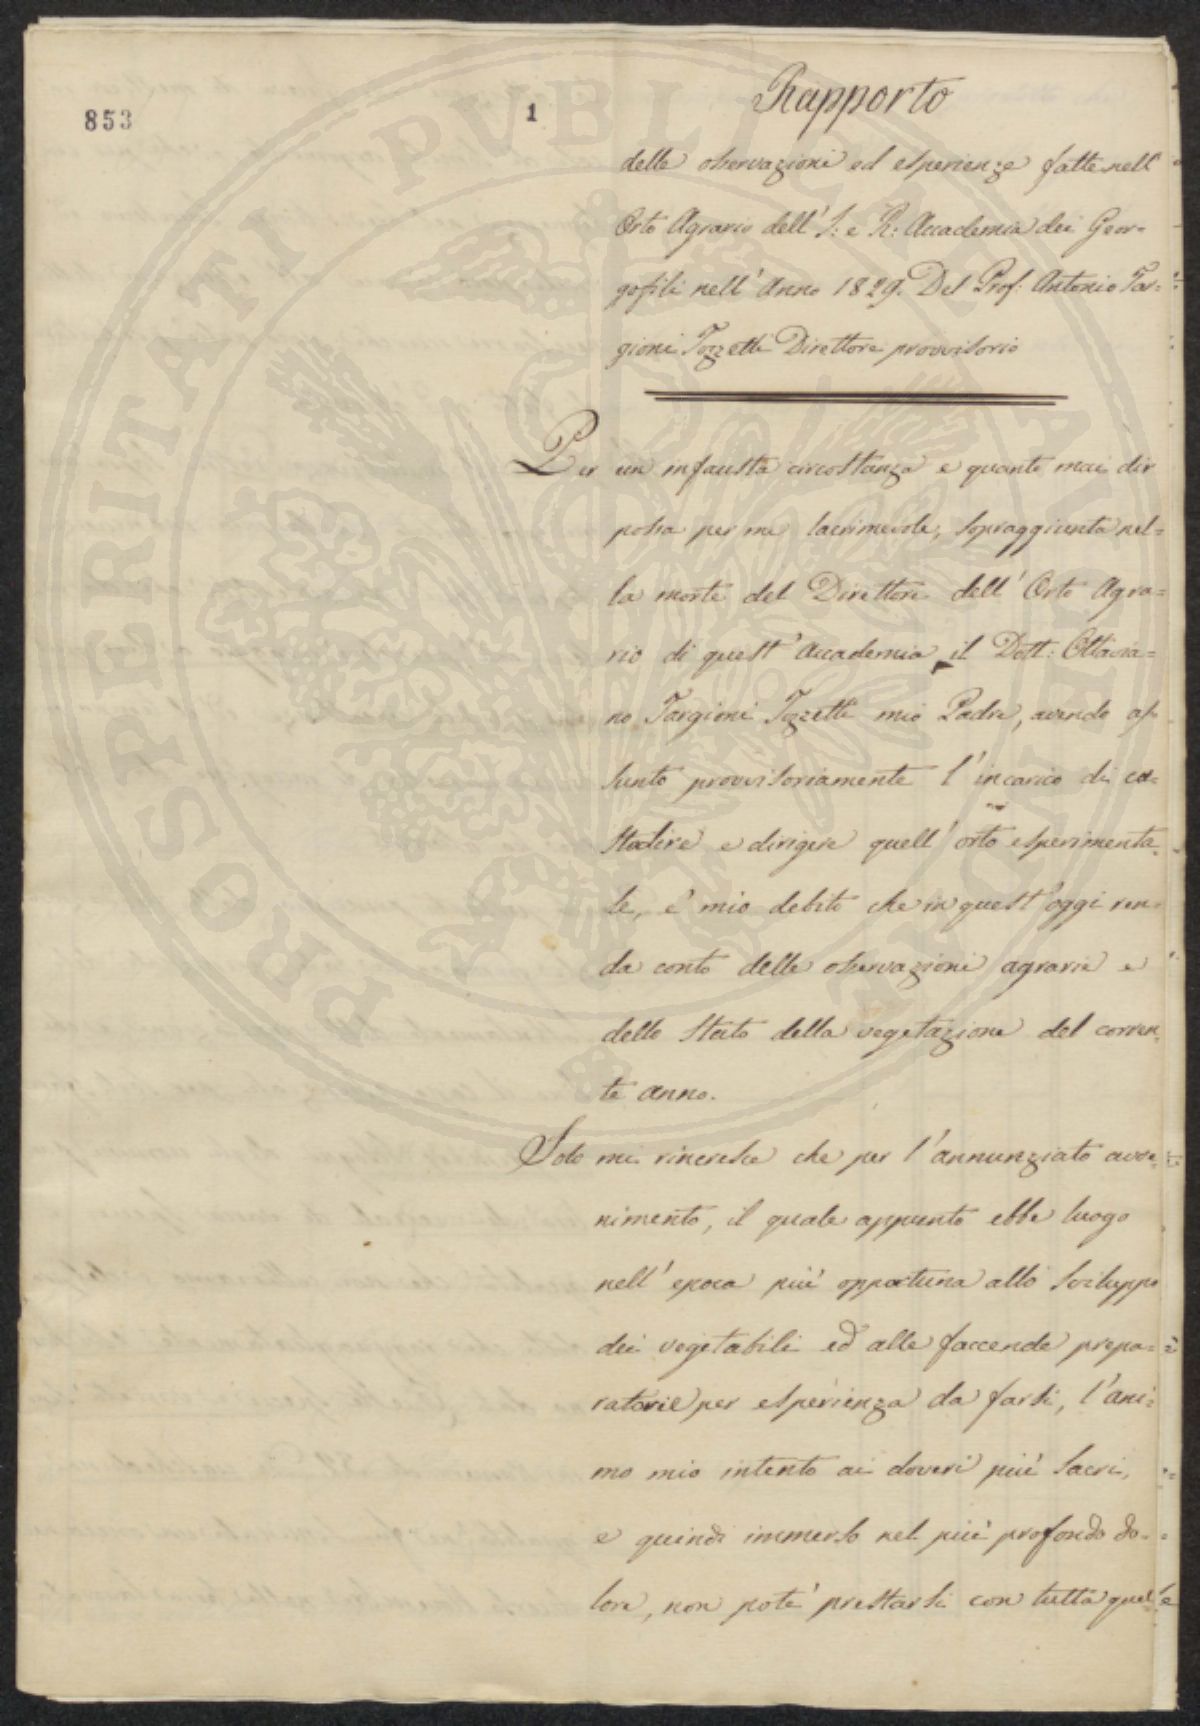 853
1
Rapporto
delle osservazioni ed esperienze fatte nell'
Orto Agrario dell' I: e R: Accademia dei Geor=
gofili nell' Anno 1829. Del Prof: Antonio Tar=
gioni Tozzetti Direttore provvisorio
Per un infausta circostanza e quanto mai dir
posso per me lacrimevole, sopraggiunta nel=
la morte del Direttore dell' Orto Agra=
rio di quest' Accademia, il Dott: Ottavia=
no Targioni Tozzetti mio Padre, avendo as=
sunto provvisoriamente l' incarico di cu=
stodire e dirigere quell' orto esperimenta=
le, è mio debito che in quest' oggi ren=
da conto delle osservazioni agrarie e
dello stato della vegetazione del corren=
te anno.
Solo mi rincresce che per l' annunziato avve=
nimento, il quale appunto ebbe luogo
nell' epoca più opportuna allo sviluppo
dei vegetabili ed alle faccende prepa=
ratorie per esperienza da farsi, l' ani=
mo mio intento ai doveri più sacri,
e quindi immerso nel più profondo do=
lore, non potè prestarsi con tutta quel
PROSPERITATI PUBLICAE AUGENDAE